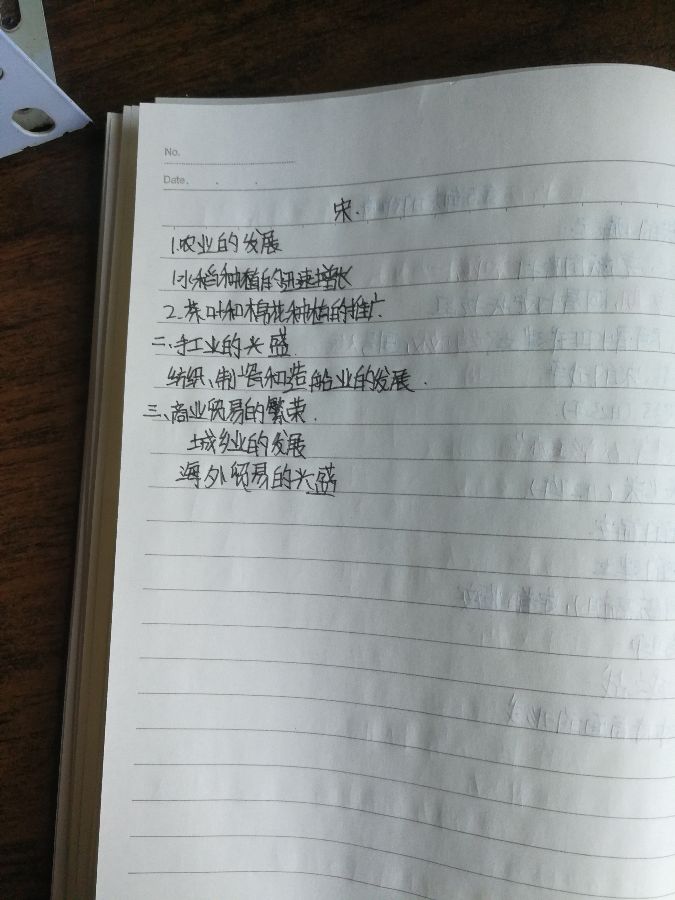 No.
Date.
宋.
1.农业的发展
1.水稻种植的迅速增长
2.茶叶和棉花种植的推广
二、手工业的兴盛.
纺织、制瓷和造船业的发展.
三、商业贸易的繁荣.
城乡业的发展
海外贸易的兴盛